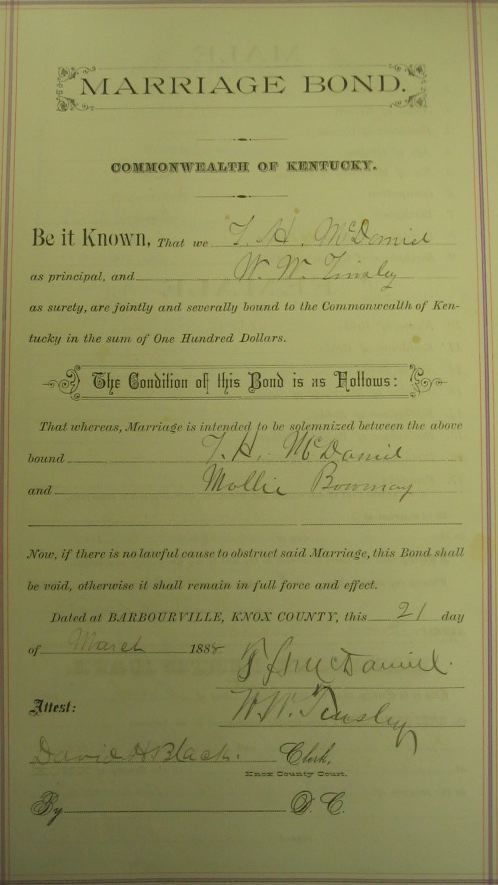 MARRIAGE BOND.
COMMONWEALTH OF KENTUCKY.
Be it Known, That we T. H. McDaniel
as principal, and W. W. Tinsley
as surety, are jointly and severally bound to the Commonwealth of Ken-
tucky in the sum of One Hundred Dollars.
The Condition of this Bond is as Follows:
That whereas, Marriage is intended to be solemnized between the above
bound T. H. McDaniel
and Mollie
Now, if there is no lawful cause to obstruct said Marriage, this Bond shall
be void, otherwise it shall remain in full force and effect.
Dated at BARBOURVILLE, KNOX COUNTY, this 21 day
of March 1888
McDaniel.
Attest: W. W. Tinsley
David H Black. Clerk,
Knox County Court.
By D. C.